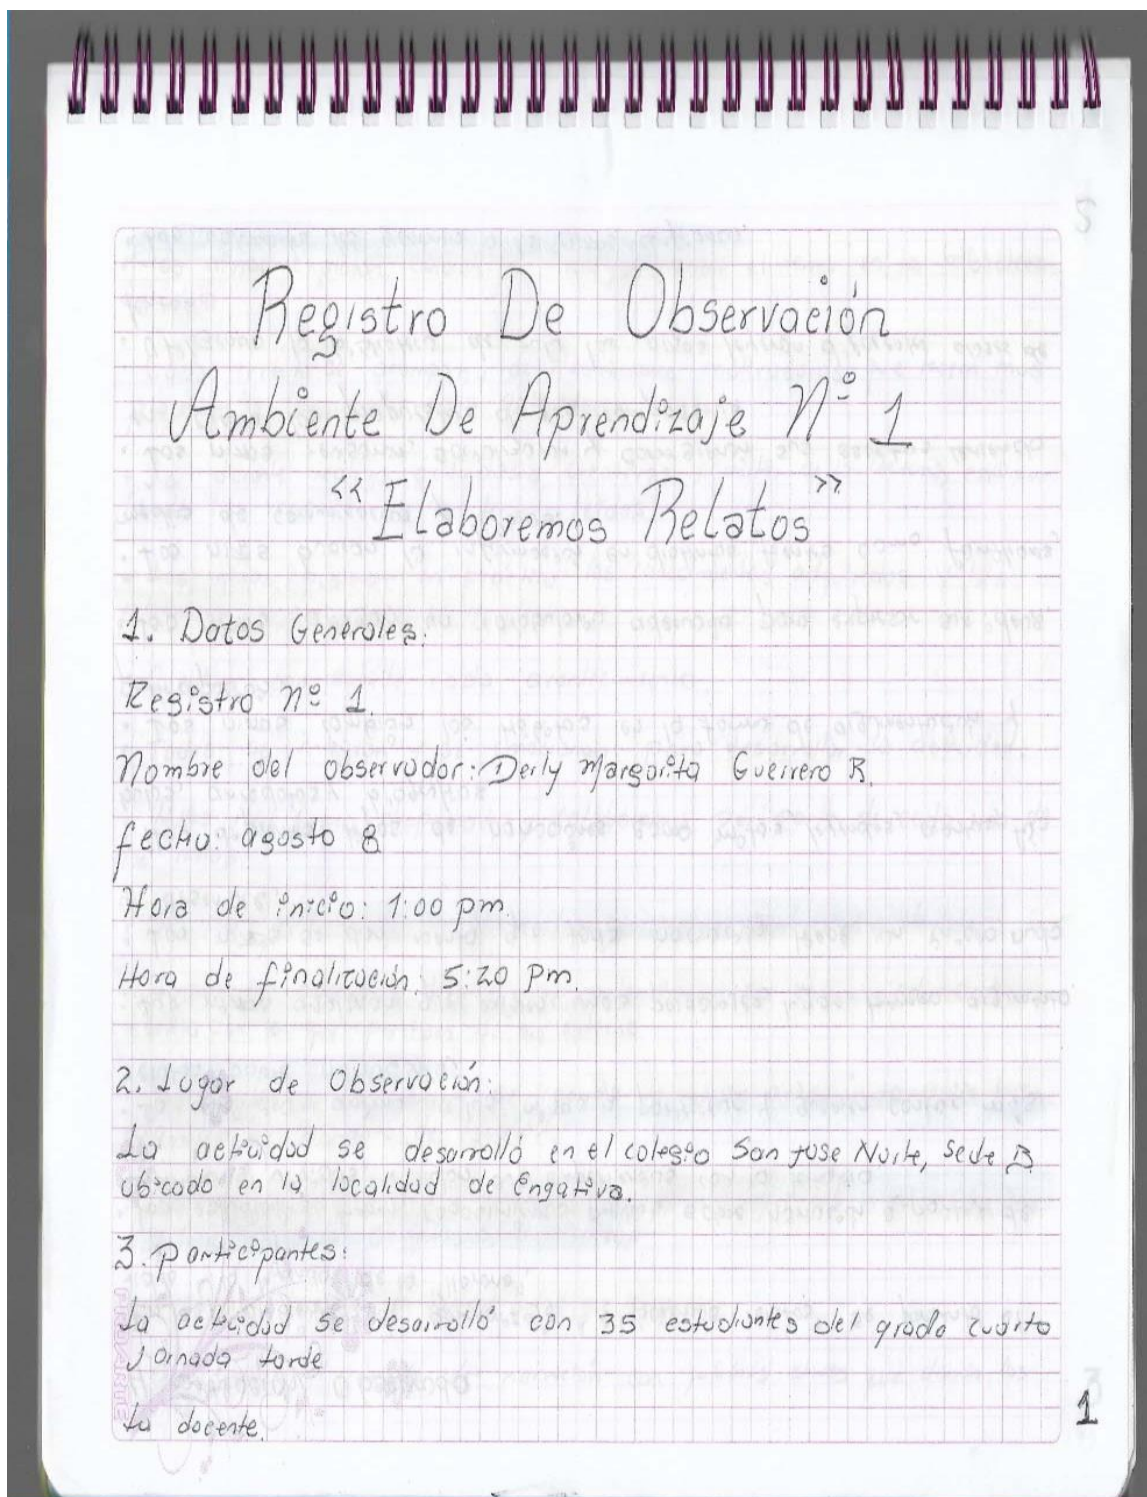 Registro De Observación
Ambiente De Aprendizaje N° 1
“Elaboremos Relatos”
1. Datos Generales:
Registro nº 1.
Nombre del observador: Derly Margarita Guerrero R.
fecha: agosto 8
Hora de inicio: 1:00 pm.
Hora de finalización: 5:20 pm.
2. Lugar de Observación:
La actividad se desarrolló en el colegio San Jose Norte, Sede B
ubicado en la localidad de Engativa.
3. Participantes:
La actividad se desarrolló con 35 estudiantes del grado cuarto
jornada tarde
La docente.
1